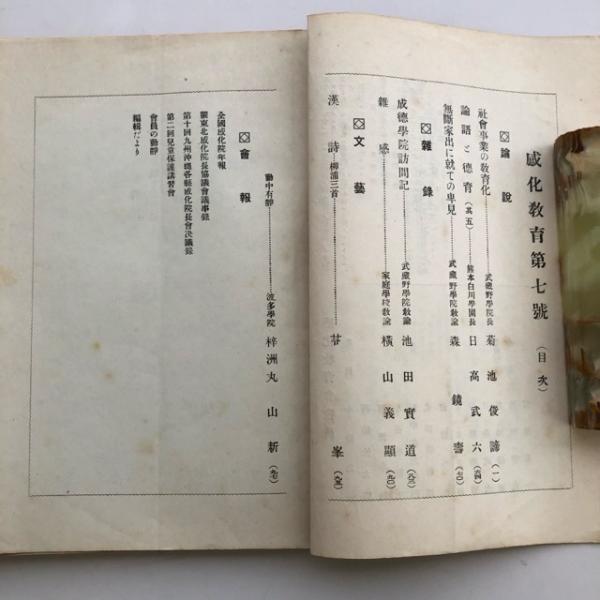 感化教育第七號（目次）
◇論說
社會事業の教育化………武藏野學院長 菊池俊諦（一）
論語と德育（其五）………熊本白川學園長 日高武六（四）
無斷家出に就ての卑見………武藏野學院教諭 森鏡壽
◇雜錄
成德學院訪問記………武藏野學院教諭 池田實道
雜感………家庭學校教諭 橫山義顯
◇文藝
漢詩―柳浦三首………峯
動中有靜………波多學院 梓洲丸山新
◇會報
全國感化院年報
關東北感化院長協議會議事錄
第十回九州沖繩各縣感化院長會決議錄
第二回兒童保護講習會
會員の動靜
編輯だより